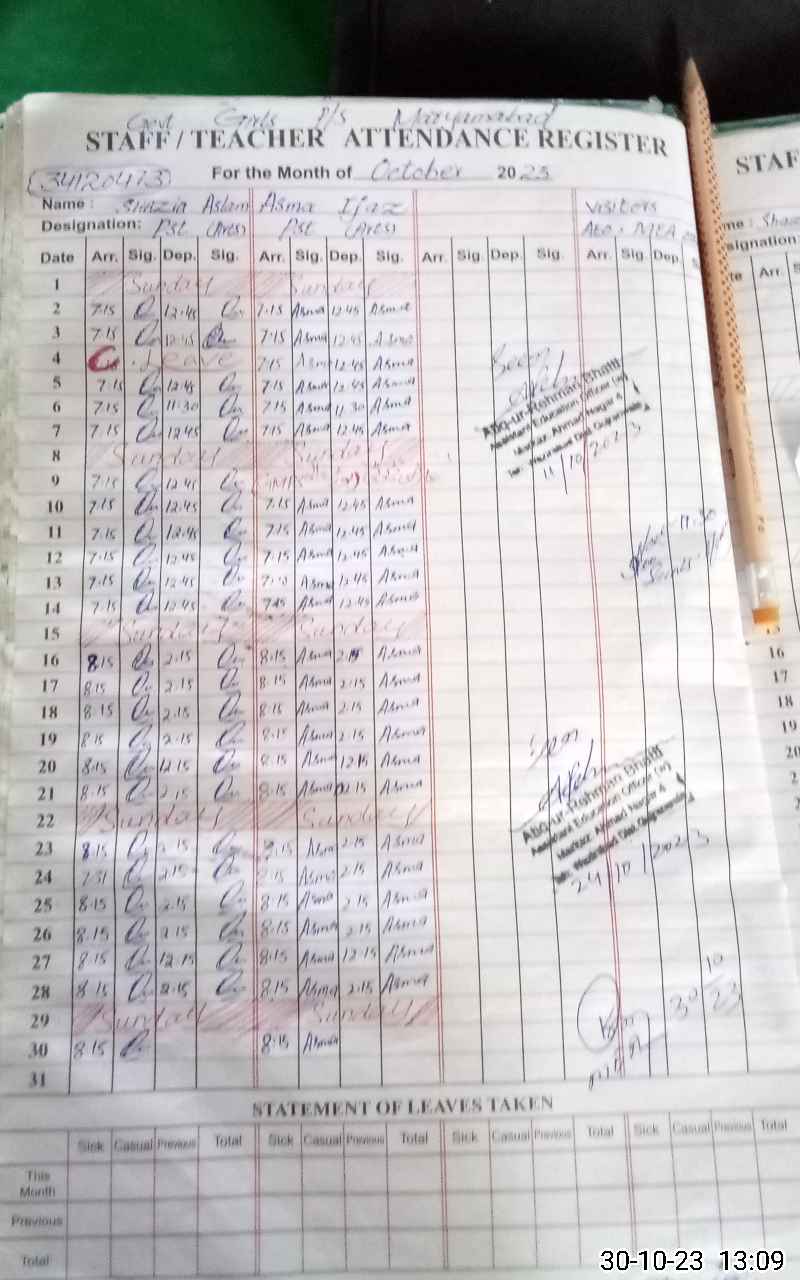 Govt Girls P/s Maryamabad
STAFF / TEACHER ATTENDANCE REGISTER
(34120473) For the Month of October 20 23
Name : Shazia Aslam Asma Ijaz Visitors
Designation: Pst (Arts) Pst (Arts) Aeo. MEA
Date Arr. Sig. Dep. Sig. Arr. Sig. Dep. Sig. Arr. Sig. Dep. Sig. Arr. Sig. Dep.
1 Sunday Sunday
2 7:15 12:45 7:15 Asma 12:45 Asma
3 7:15 12:45 7:15 Asma 12:45 Asma
4 C. Leave 7:15 Asma 12:45 Asma
5 7:15 12:45 7:15 Asma 12:45 Asma
6 7:15 11:30 7:15 Asma 11:30 Asma
7 7:15 12:45 7:15 Asma 12:45 Asma
8 Sunday Sunday
9 7:15 12:45
10 7:15 12:45 7:15 Asma 12:45 Asma
11 7:15 12:45 7:15 Asma 12:45 Asma
12 7:15 12:45 7:15 Asma 12:45 Asma
13 7:15 12:45 Asma 12:45 Asma
14 7:15 12:45 Asma 12:45 Asma
15 Sunday Sunday
16 8:15 2:15 8:15 Asma 2:15 Asma
17 8:15 2:15 8:15 Asma 2:15 Asma
18 8:15 2:15 8:15 Asma 2:15 Asma
19 8:15 2:15 8:15 Asma 2:15 Asma
20 8:15 12:15 8:15 Asma 12:15 Asma
21 8:15 2:15 8:15 Asma 2:15 Asma
22 Sunday Sunday
23 8:15 2:15 8:15 Asma 2:15 Asma
24 2:15 Asma 2:15 Asma
25 8:15 2:15 8:15 Asma 2:15 Asma
26 8:15 2:15 8:15 Asma 2:15 Asma
27 8:15 12:15 8:15 Asma 12:15 Asma
28 8:15 2:15 8:15 Asma 2:15 Asma
29 Sunday Sunday
30 8:15 8:15 Asma
31
Seen
Abq-ur-Rehman Bhatti
Assistant Education Officer (w)
Markaz, Ahmad Nagar 4
11/10/2023
Seen
Abq-ur-Rehman Bhatti
Assistant Education Officer (w)
Markaz, Ahmad Nagar 4
24/10/2023
30 10 23
STATEMENT OF LEAVES TAKEN
Sick Casual Previous Total Sick Casual Previous Total Sick Casual Previous Total Sick Casual Previous Total
This
Month
Previous
Total
STAF
16
17
18
19
30-10-23 13:09